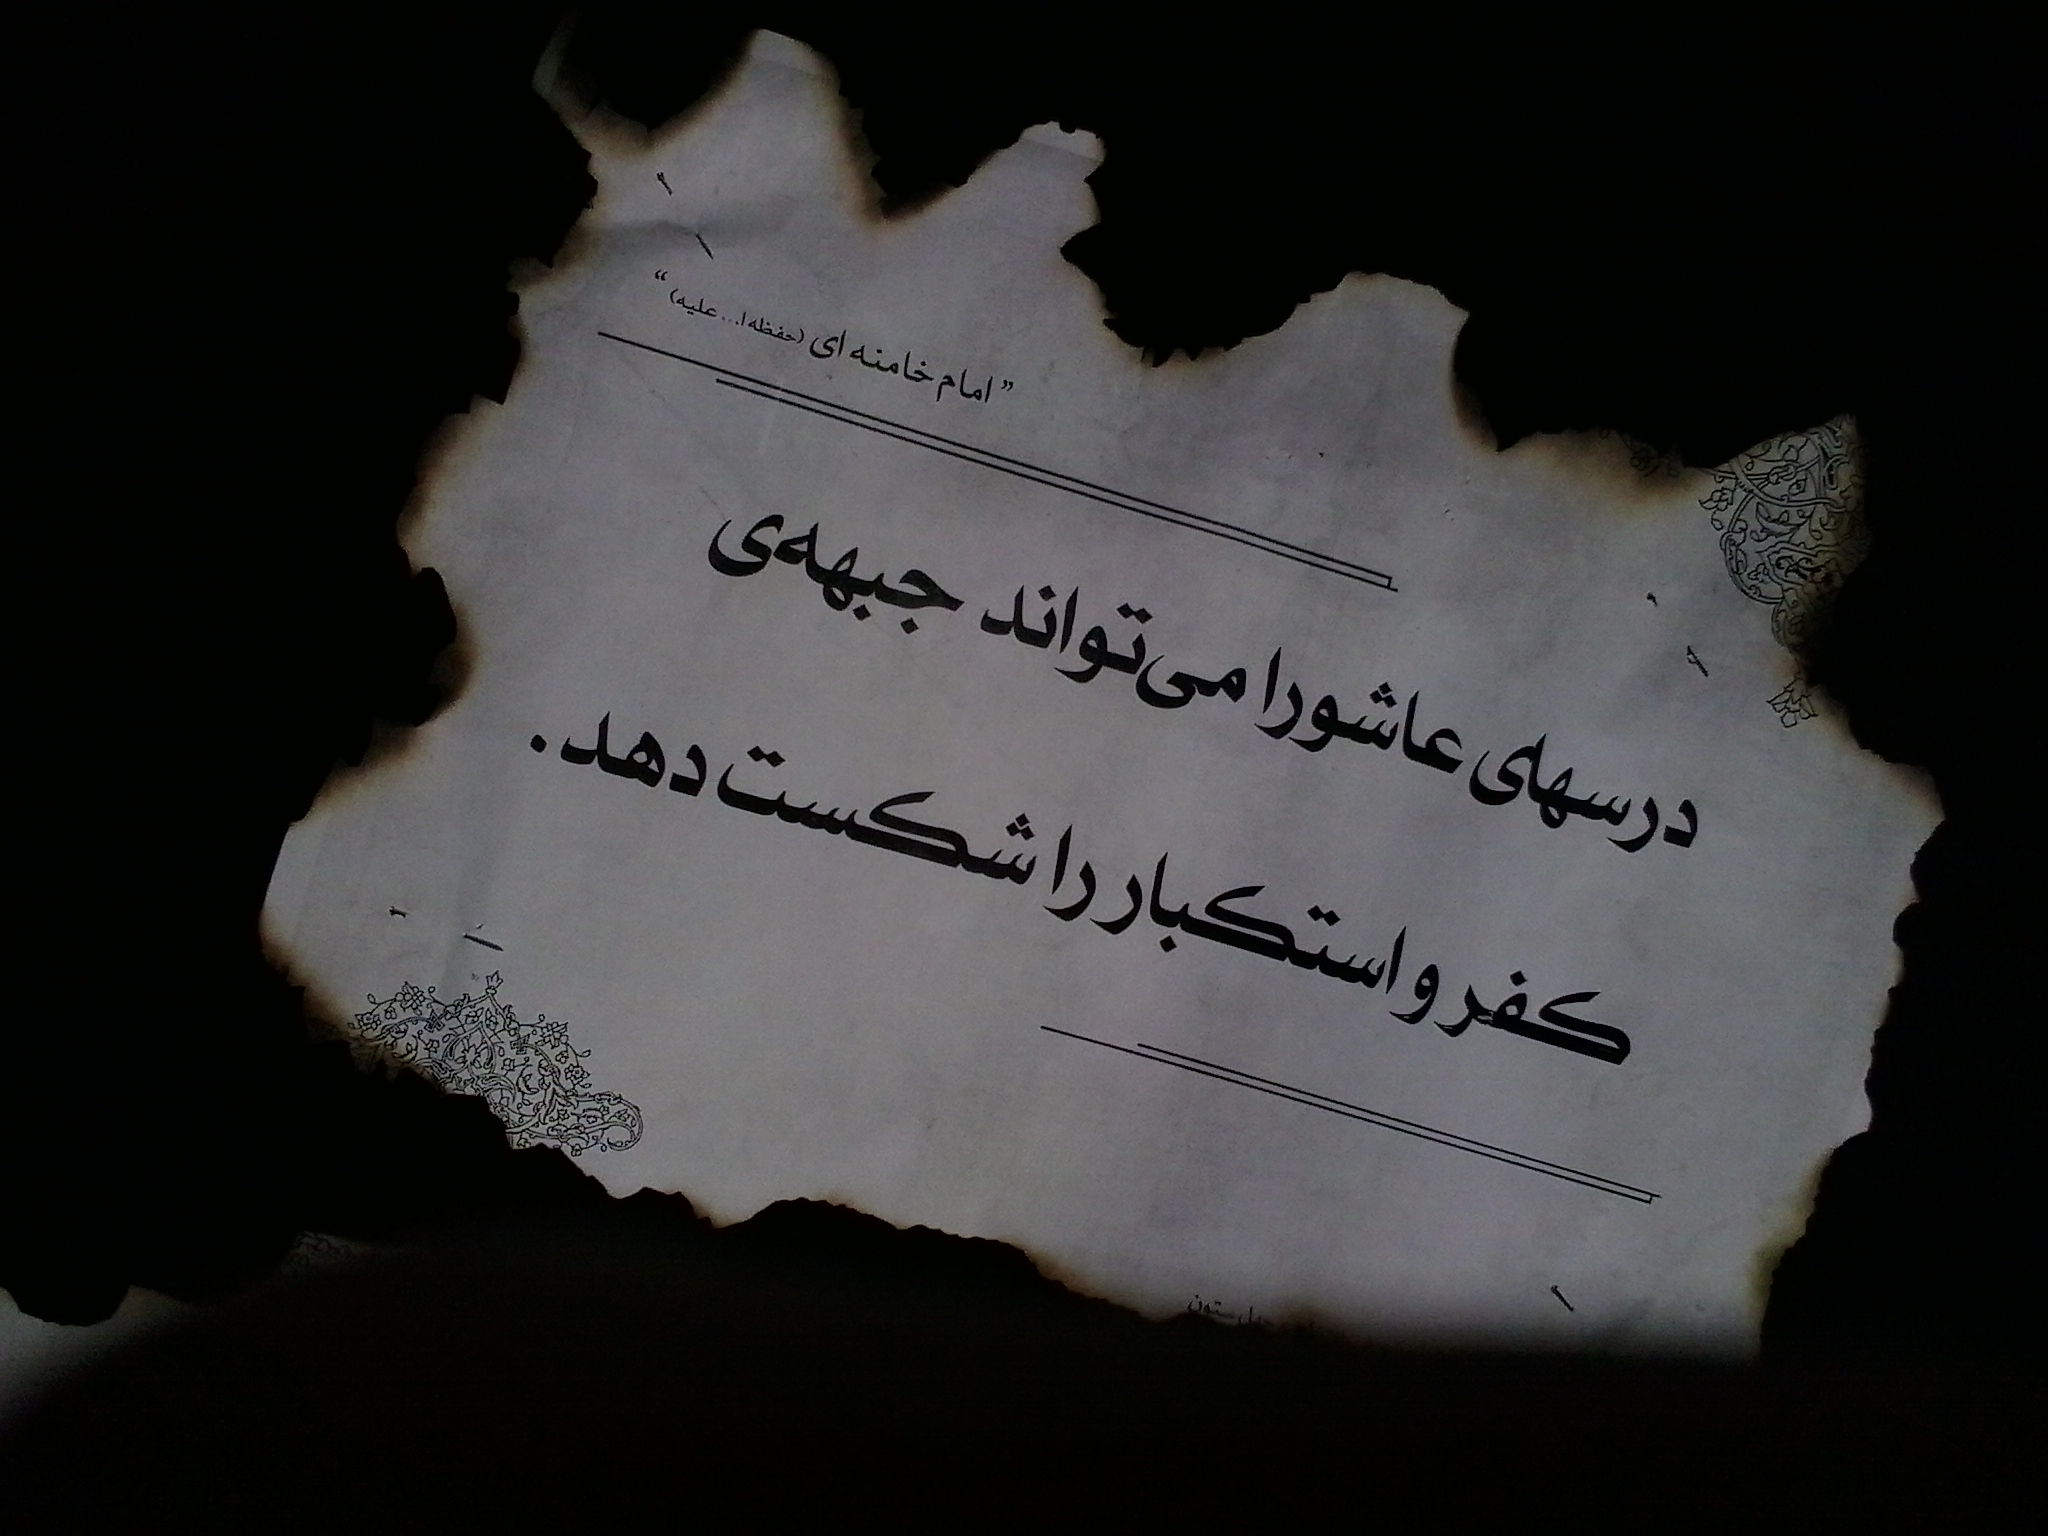 ” امام خامنه ای (حفظه ا... علیه) “
درسهای عاشورا می‌تواند جبهه‌ی
کفر و استکبار را شکست دهد.
ستون